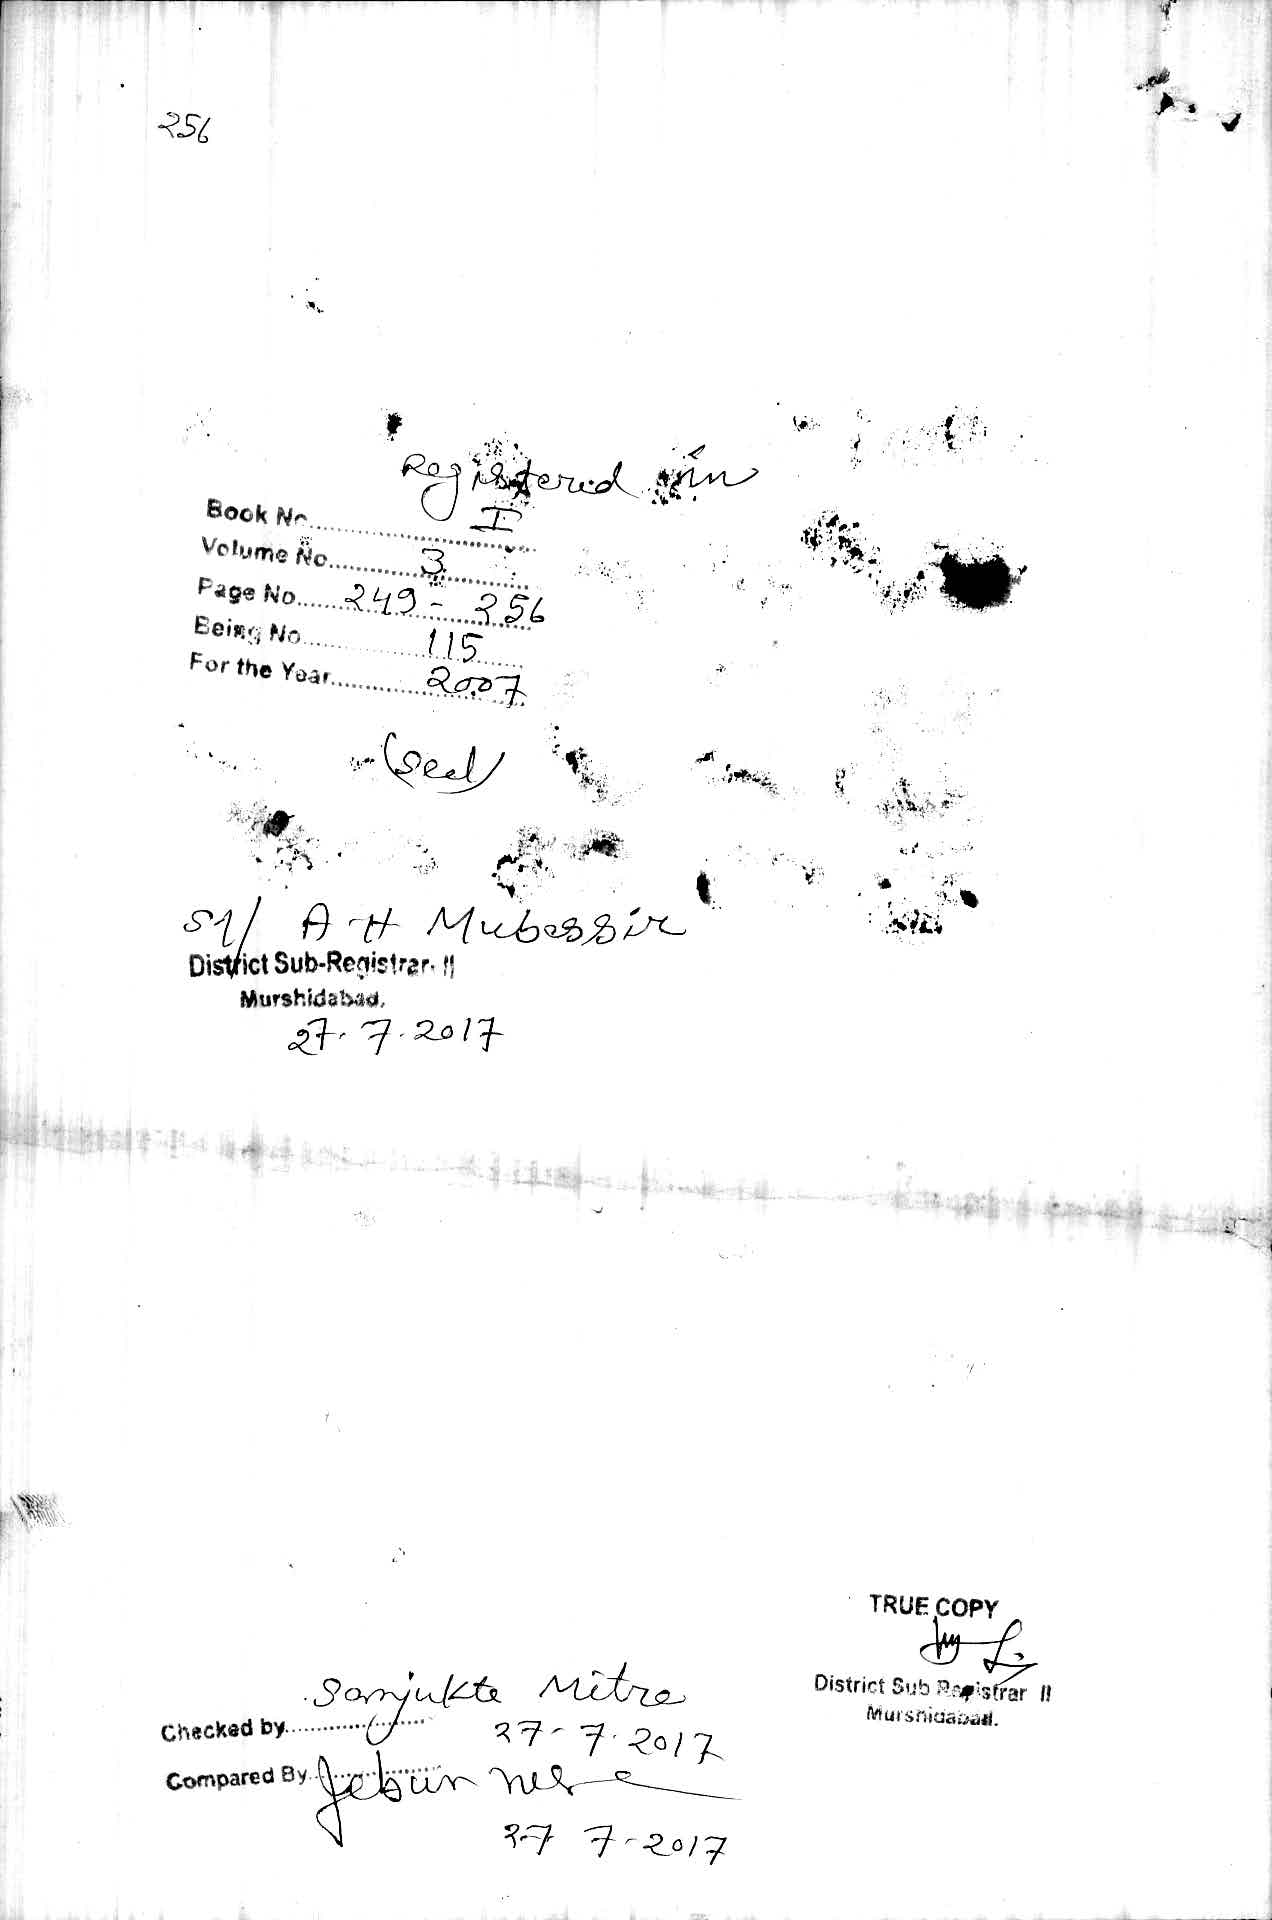 256
Registered in
Book No. I
Volume No. 3
Page No. 249 - 256
Being No. 115
For the Year 2007
(Seal)
Sd/ A H Mubassir
District Sub-Registrar-II
Murshidabad.
27.7.2017
TRUE COPY
District Sub Registrar II
Murshidabad.
Sanjukta Mitra
Checked by
27-7.2017
Compared By Jebun nesa
27 7-2017